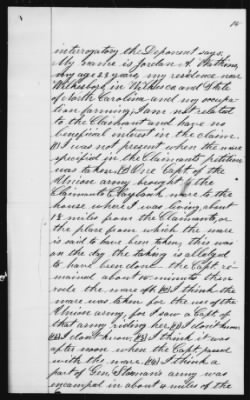 interrogatory the Deponent says,
My name is Jordan A.
my age 23 years, my residence near
Wilkesboro in Wilkes Co and State
of North Carolina and my occupa-
tion farming; I am not related
to the Claimant and have no
beneficial interest in the claim.
I was not present when the mare
specified in the Claimants petition
was taken. One Capt of the
Union army brought the
Claimants mare to the
house where I was living, about
1½ miles from the Claimants, or
the place from which the mare
is said to have been taken, this was
on the day the taking is alleged
to have been done. the Capt re-
mained about ten minutes then
rode the mare off. I think the
mare was taken for the use of the
Union army, for I saw a Capt of
that army riding her. I don't know
I don't know. I think it was
after noon when the Capt passed
with the mare. I think a
part of Gen. Stoneman's army was
encamped in about 4 miles of the